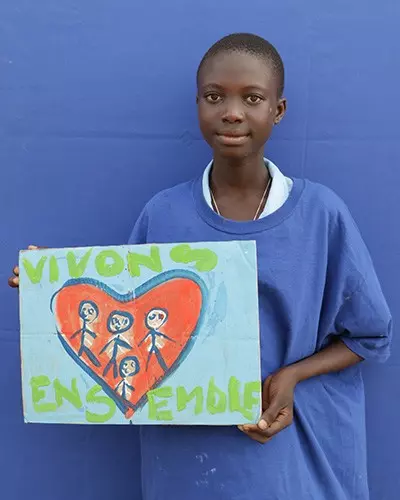 VIVONS
ENSEMBLE